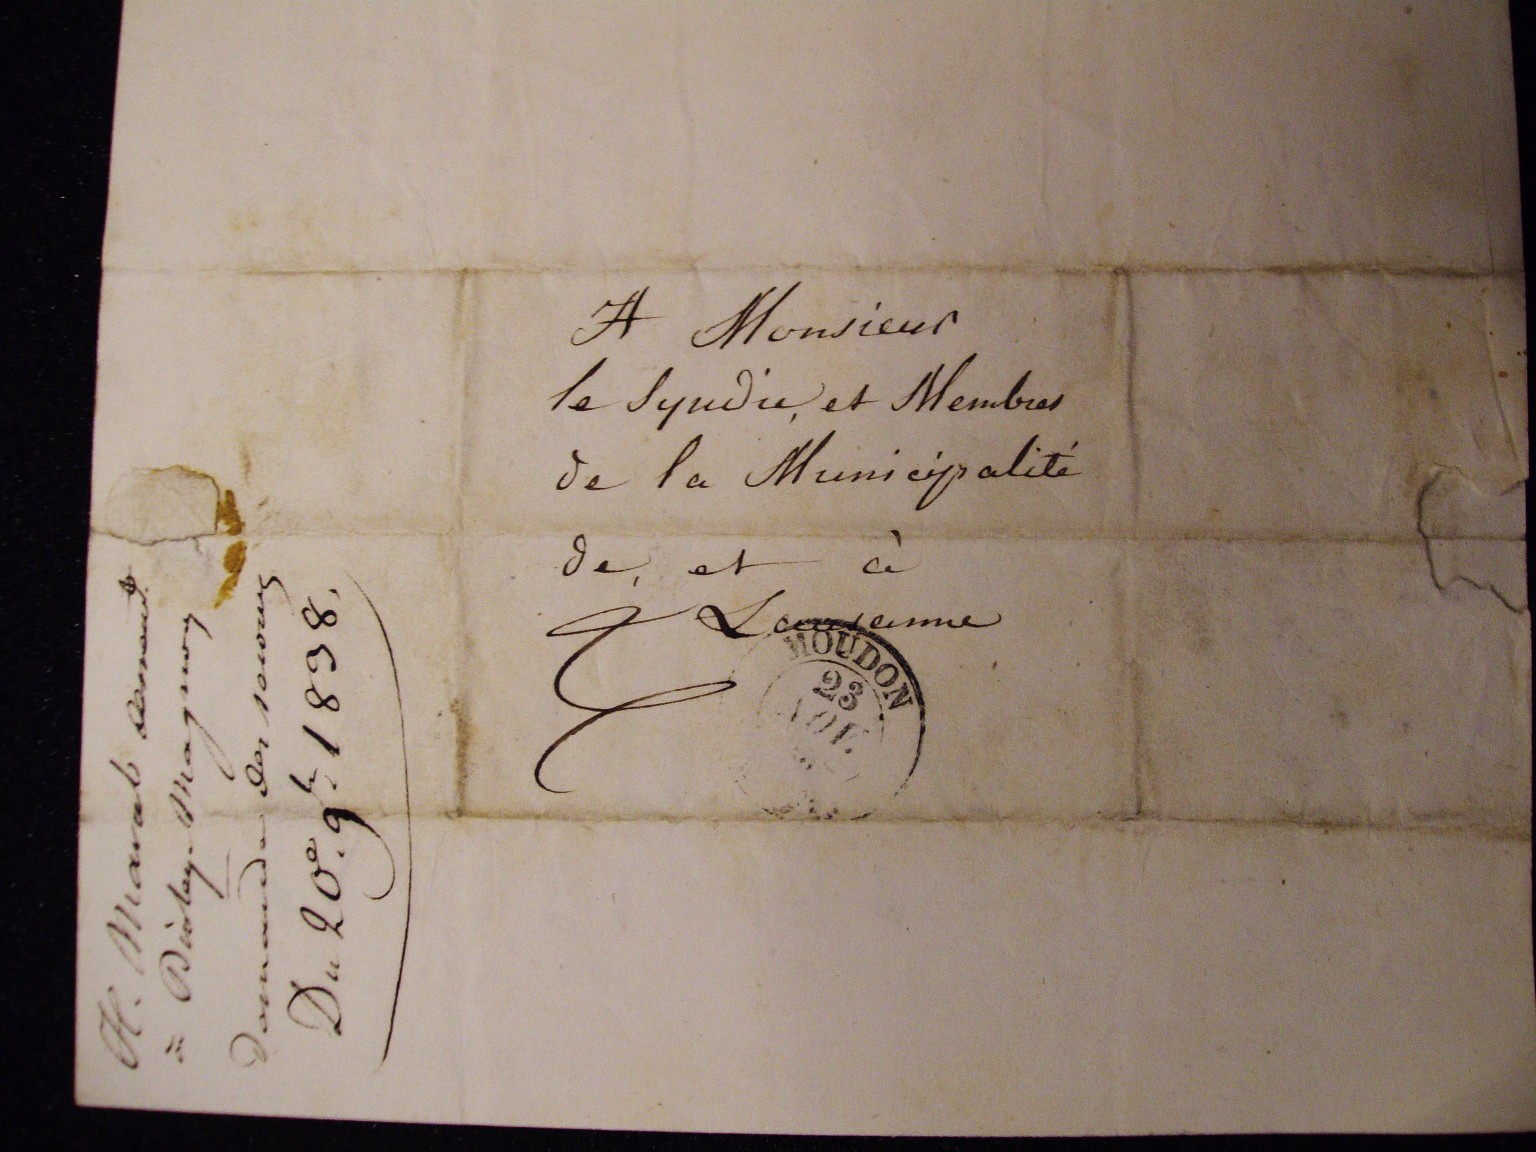 A Monsieur
le Syndic, et Membres
de la Municipalité
de, et à
Lausanne
MOUDON
23
NOV.
H.
à Bioley-Magnoux
demande des secours
Du 20e. 9bre 1838.